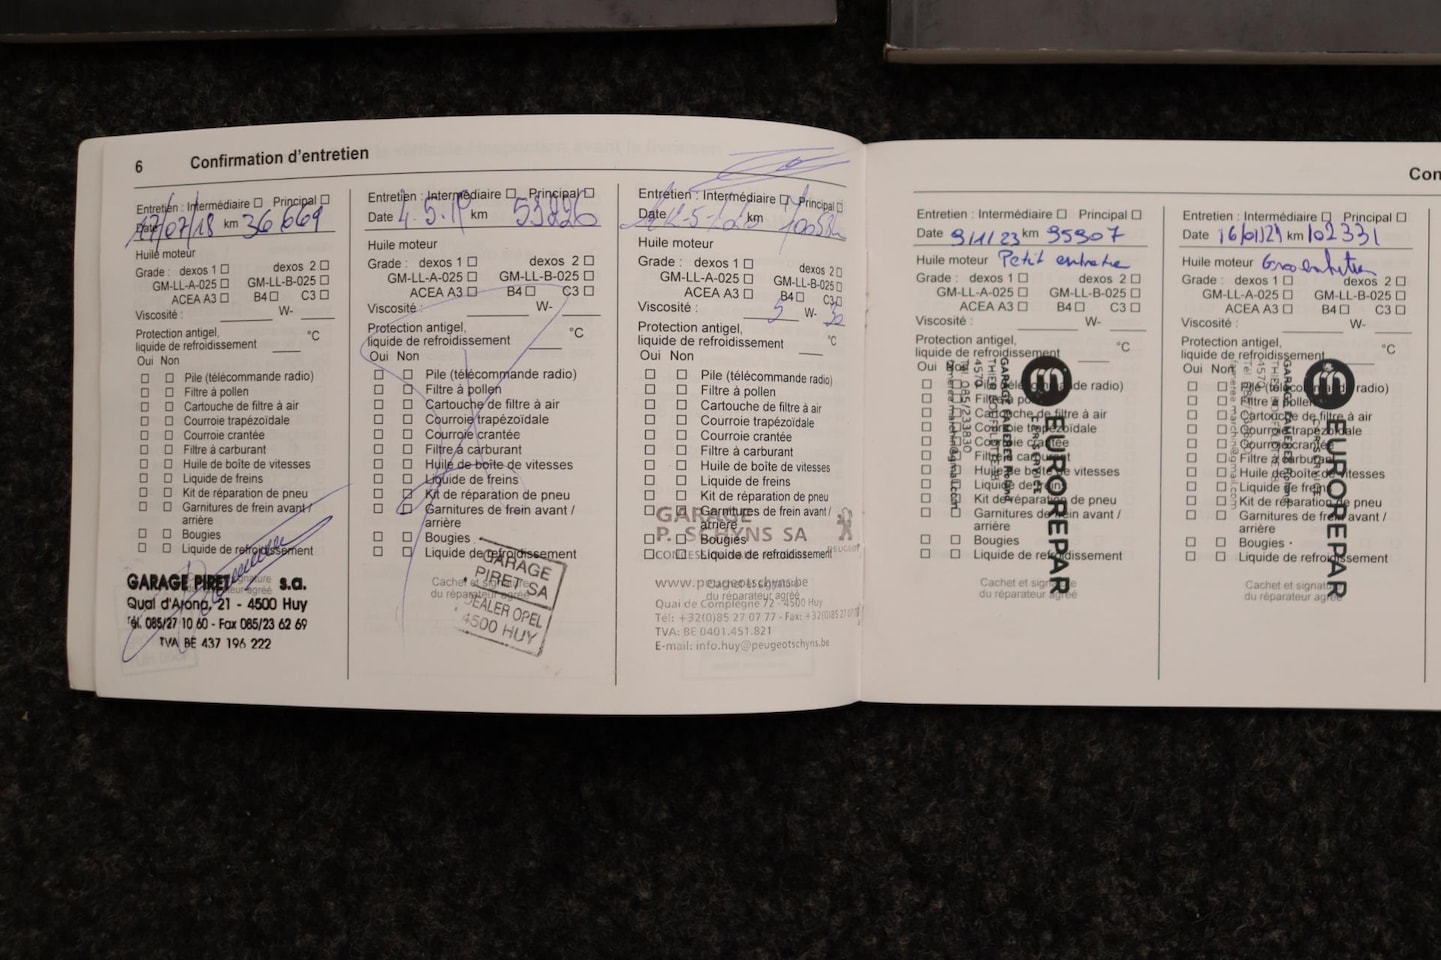 6 Confirmation d'entretien
Entretien : Intermédiaire Principal
Date 17/07/18 km 36669
Huile moteur
Grade : dexos 1 dexos 2
GM-LL-A-025 GM-LL-B-025
ACEA A3 B4 C3
Viscosité : W-
Protection antigel,
liquide de refroidissement °C
Oui Non
Pile (télécommande radio)
Filtre à pollen
Cartouche de filtre à air
Courroie trapézoïdale
Courroie crantée
Filtre à carburant
Huile de boîte de vitesses
Liquide de freins
Kit de réparation de pneu
Garnitures de frein avant /
arrière
Bougies
Liquide de refroidissement
GARAGE PIRET s.a.
Quai d'Arona, 21 - 4500 Huy
Tél. 085/27 10 60 - Fax 085/23 62 69
TVA BE 437 196 222
Entretien : Intermédiaire Principal
Date 4.5.19 km 53826
Huile moteur
Grade : dexos 1 dexos 2
GM-LL-A-025 GM-LL-B-025
ACEA A3 B4 C3
Viscosité : W-
Protection antigel,
liquide de refroidissement °C
Oui Non
Pile (télécommande radio)
Filtre à pollen
Cartouche de filtre à air
Courroie trapézoïdale
Courroie crantée
Filtre à carburant
Huile de boîte de vitesses
Liquide de freins
Kit de réparation de pneu
Garnitures de frein avant /
arrière
Bougies
Liquide de refroidissement
Cachet et signature
du réparateur agréé
GARAGE
PIRET SA
DEALER OPEL
4500 HUY
Entretien : Intermédiaire Principal
Date km
Huile moteur
Grade : dexos 1 dexos 2
GM-LL-A-025 GM-LL-B-025
ACEA A3 B4 C3
Viscosité : 5 W- 30
Protection antigel,
liquide de refroidissement °C
Oui Non
Pile (télécommande radio)
Filtre à pollen
Cartouche de filtre à air
Courroie trapézoïdale
Courroie crantée
Filtre à carburant
Huile de boîte de vitesses
Liquide de freins
Kit de réparation de pneu
Garnitures de frein avant /
arrière
Bougies
Liquide de refroidissement
GARAGE
P. SCHYNS SA
PEUGEOT
www.peugeotschyns.be
du réparateur agréé
Quai de Compiègne 72 - 4500 Huy
Tél: +32(0)85 27 07 77 - Fax: +32(0)85 27 07
TVA: BE 0401.451.821
E-mail: info.huy@peugeotschyns.be
Con
Entretien : Intermédiaire Principal
Date 9/1/23 km 95907
Huile moteur Petit entretien
Grade : dexos 1 dexos 2
GM-LL-A-025 GM-LL-B-025
ACEA A3 B4 C3
Viscosité : W-
Protection antigel,
liquide de refroidissement °C
Oui Non
Pile (télécommande radio)
Filtre à pollen
Cartouche de filtre à air
Courroie trapézoïdale
Courroie crantée
Filtre à carburant
Huile de boîte de vitesses
Liquide de freins
Kit de réparation de pneu
Garnitures de frein avant /
arrière
Bougies
Liquide de refroidissement
Cachet et signature
du réparateur agréé
EUROREPAR
Entretien : Intermédiaire Principal
Date 16/01/24 km 102331
Huile moteur Gros entretien
Grade : dexos 1 dexos 2
GM-LL-A-025 GM-LL-B-025
ACEA A3 B4 C3
Viscosité : W-
Protection antigel,
liquide de refroidissement °C
Oui Non
Pile (télécommande radio)
Filtre à pollen
Cartouche de filtre à air
Courroie trapézoïdale
Courroie crantée
Filtre à carburant
Huile de boîte de vitesses
Liquide de freins
Kit de réparation de pneu
Garnitures de frein avant /
arrière
Bougies
Liquide de refroidissement
Cachet et signature
du réparateur agréé
EUROREPAR